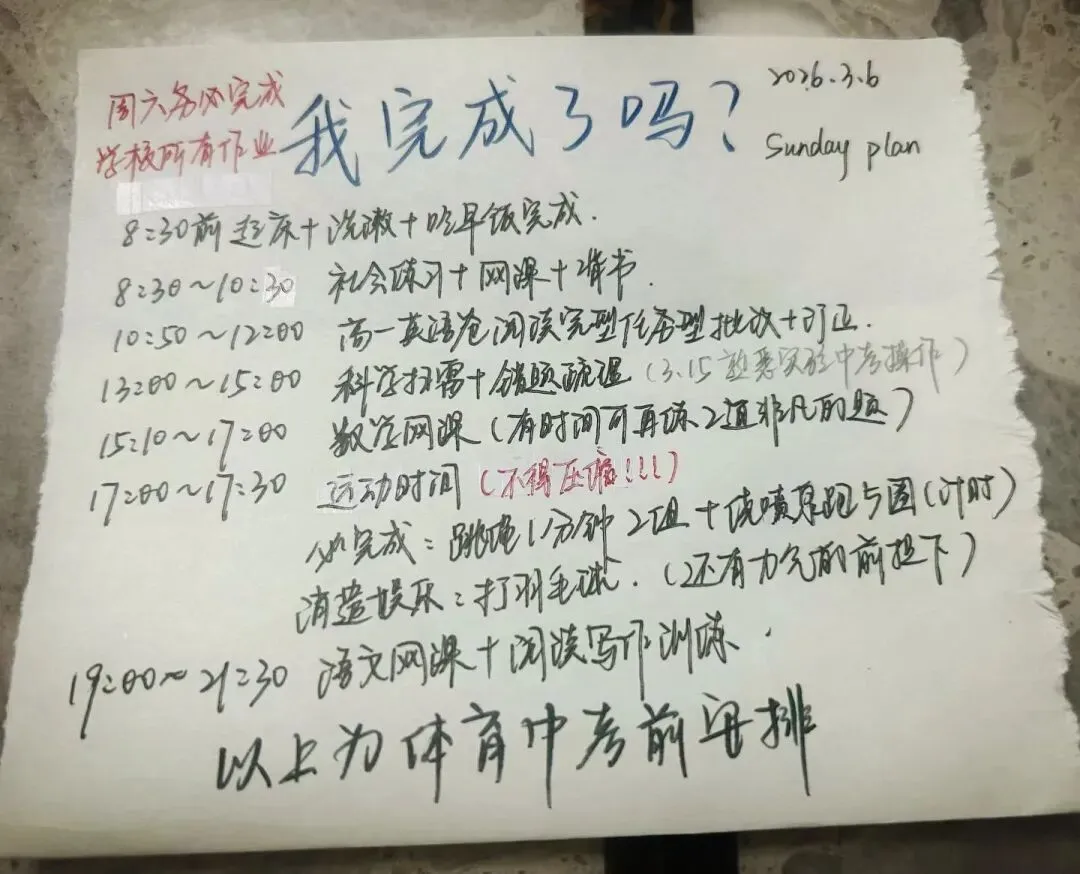 周六务必完成
学校所有作业
我完成了吗?
2026.3.6
Sunday plan
8:30前起床+洗漱+吃早饭完成.
8:30~10:30 社会练习+网课+背书.
10:50~12:00 高一英语卷阅读完型任务型批改+订正.
13:00~15:00 科学扫雷+错题疏理(3.15 熟悉实验中考操作)
15:10~17:00 数学网课(有时间可再练2道非凡的题)
17:00~17:30 运动时间(不得压缩!!!)
必完成:跳绳1分钟2组+绕喷泉跑5圈(计时)
消遣娱乐:打羽毛球.(还有力气的前提下)
19:00~21:30 语文网课+阅读写作训练.
以上为体育中考前安排